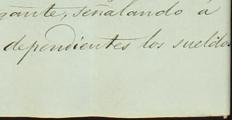 gante, señalando á
dependientes los sueldo